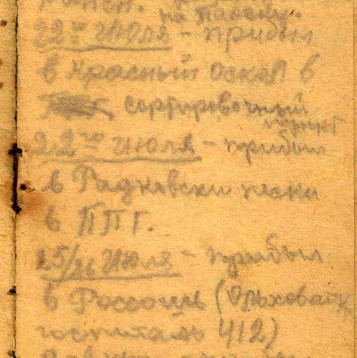 ранен.
на Пасеку.
22го июля - прибыл
в Красный Оскол в
сортировочный
пункт
22го июля - прибыл
в Радковски пески
в ППГ.
25/26 Июля - прибыл
в Россошь (Ольховатк
госпиталь 412)